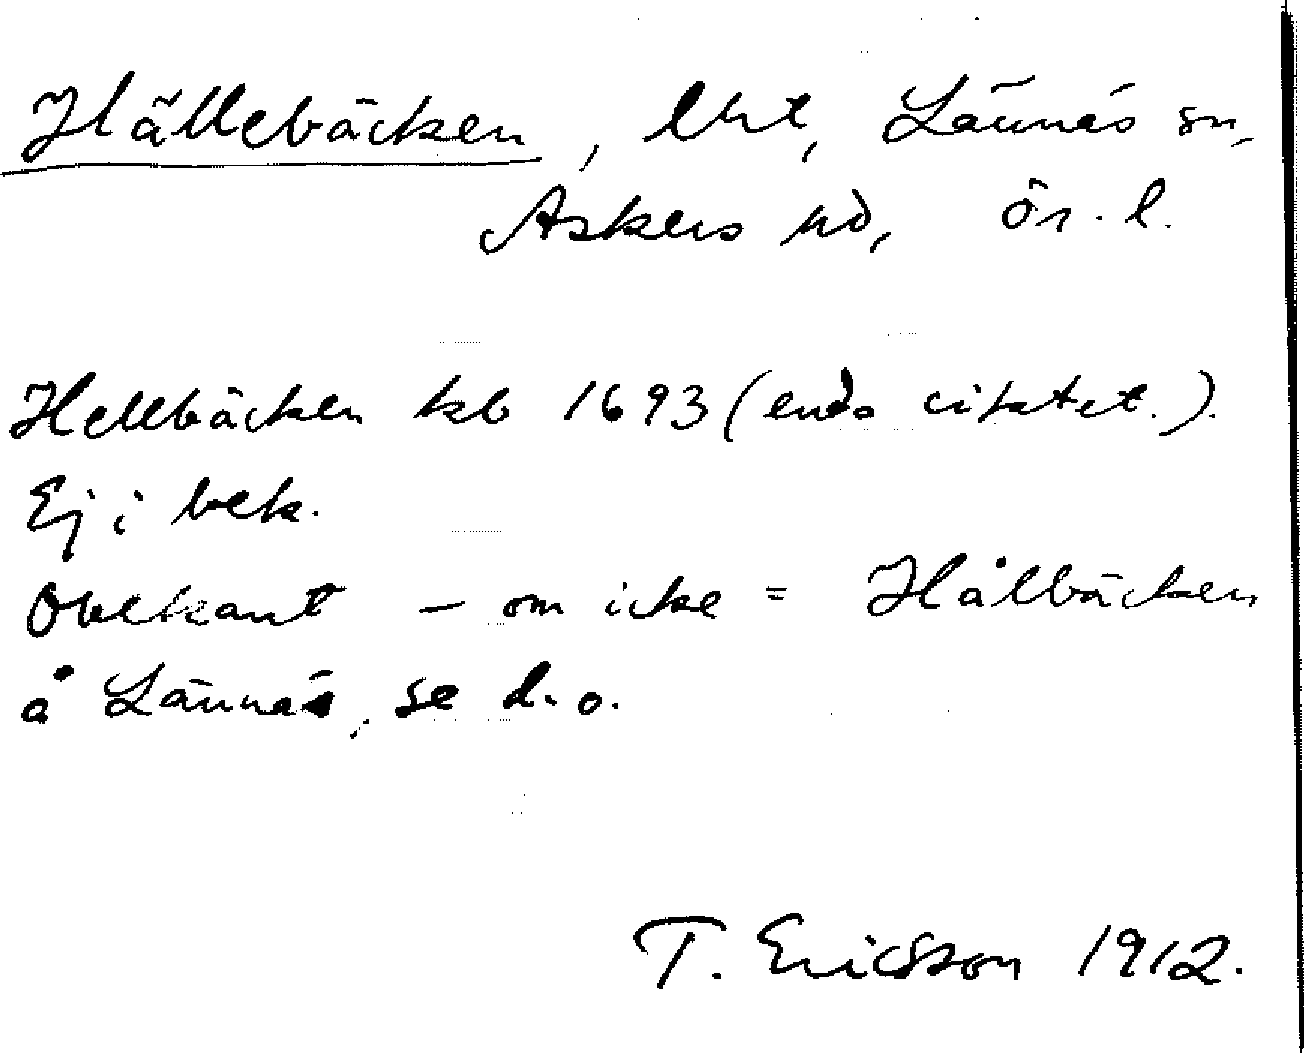 Hällebäcken, lht, Lännäs sn,
Askers hd, Ör. l.
Hellbäcken kb 1693 (enda citatet.).
Ej i bek.
Obekant – om icke = Hålbäcken
å Lännäs, se d. o.
T. Ericsson 1912.